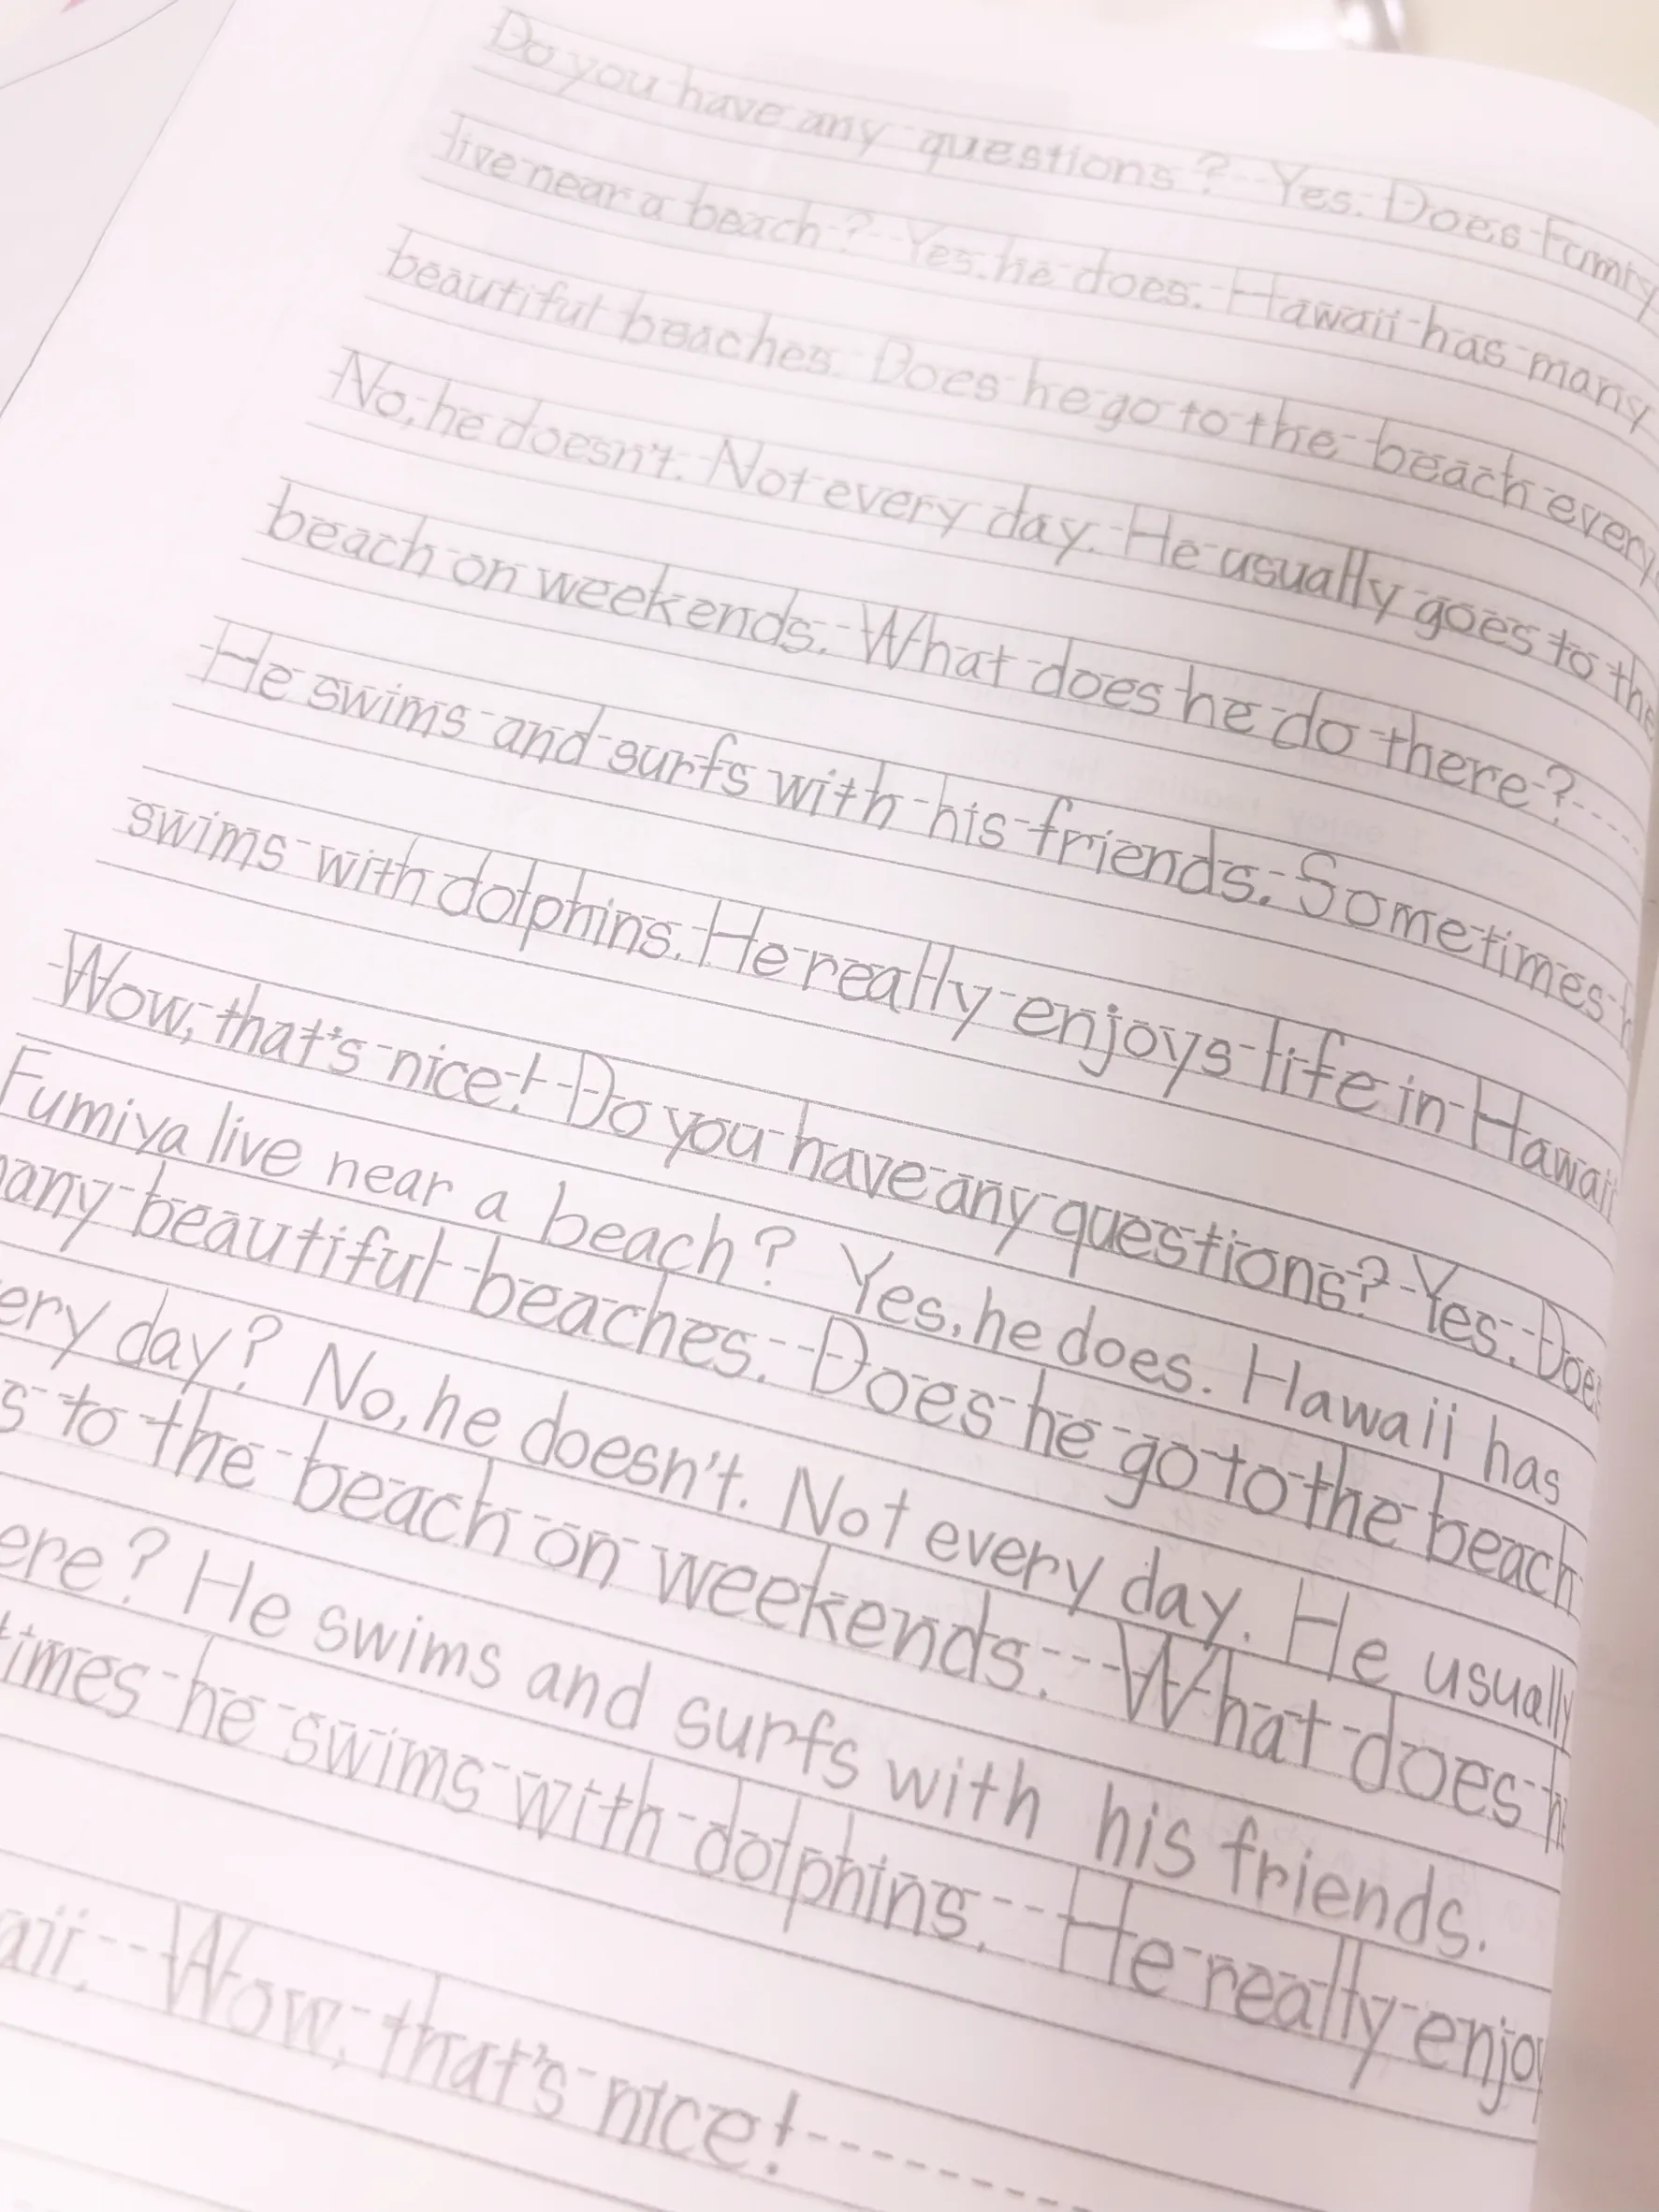 Do you have any questions? Yes. Does Fumiy
live near a beach? Yes, he does. Hawaii has many
beautiful beaches. Does he go to the beach every
No, he doesn't. Not every day. He usually goes to the
beach on weekends. What does he do there?
He swims and surfs with his friends. Sometimes h
swims with dolphins. He really enjoys life in Hawaii
Wow, that's nice! Do you have any questions? Yes. Does
Fumiya live near a beach? Yes, he does. Hawaii has
many beautiful beaches. Does he go to the beach
ery day? No, he doesn't. Not every day. He usually
s to the beach on weekends. What does he
ere? He swims and surfs with his friends.
times he swims with dolphins. He really enjoy
aii. Wow, that's nice!